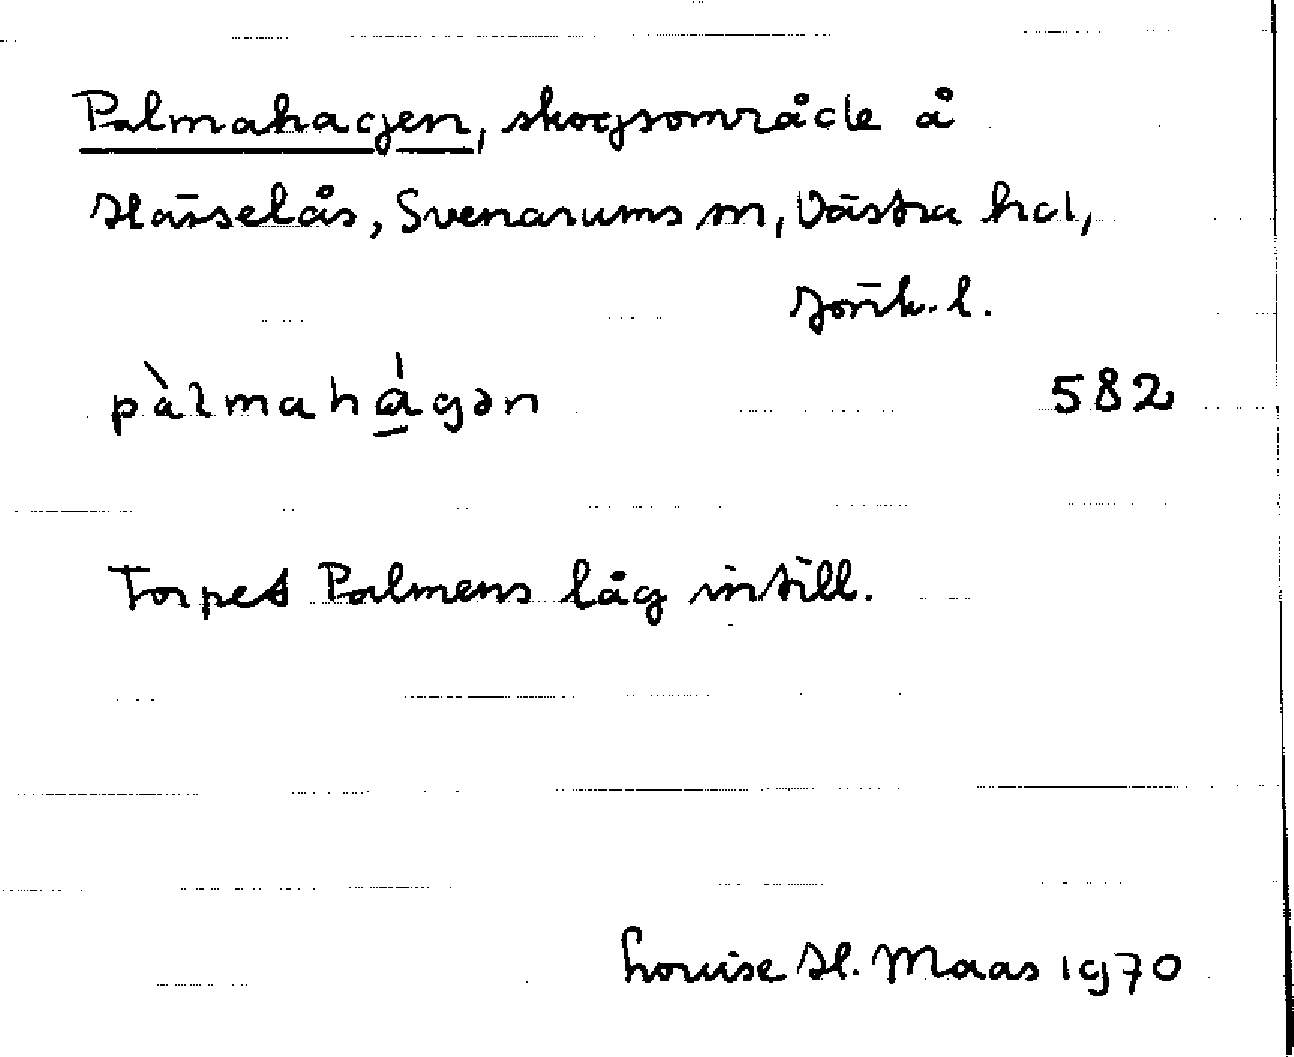 Palmahagen, skogsområde å
Hässelås, Svenarums sn, Västra hd,
Jönk. l.
pàlmahágən 582
Torpet Palmens låg intill.
Louise H. Maas 1970